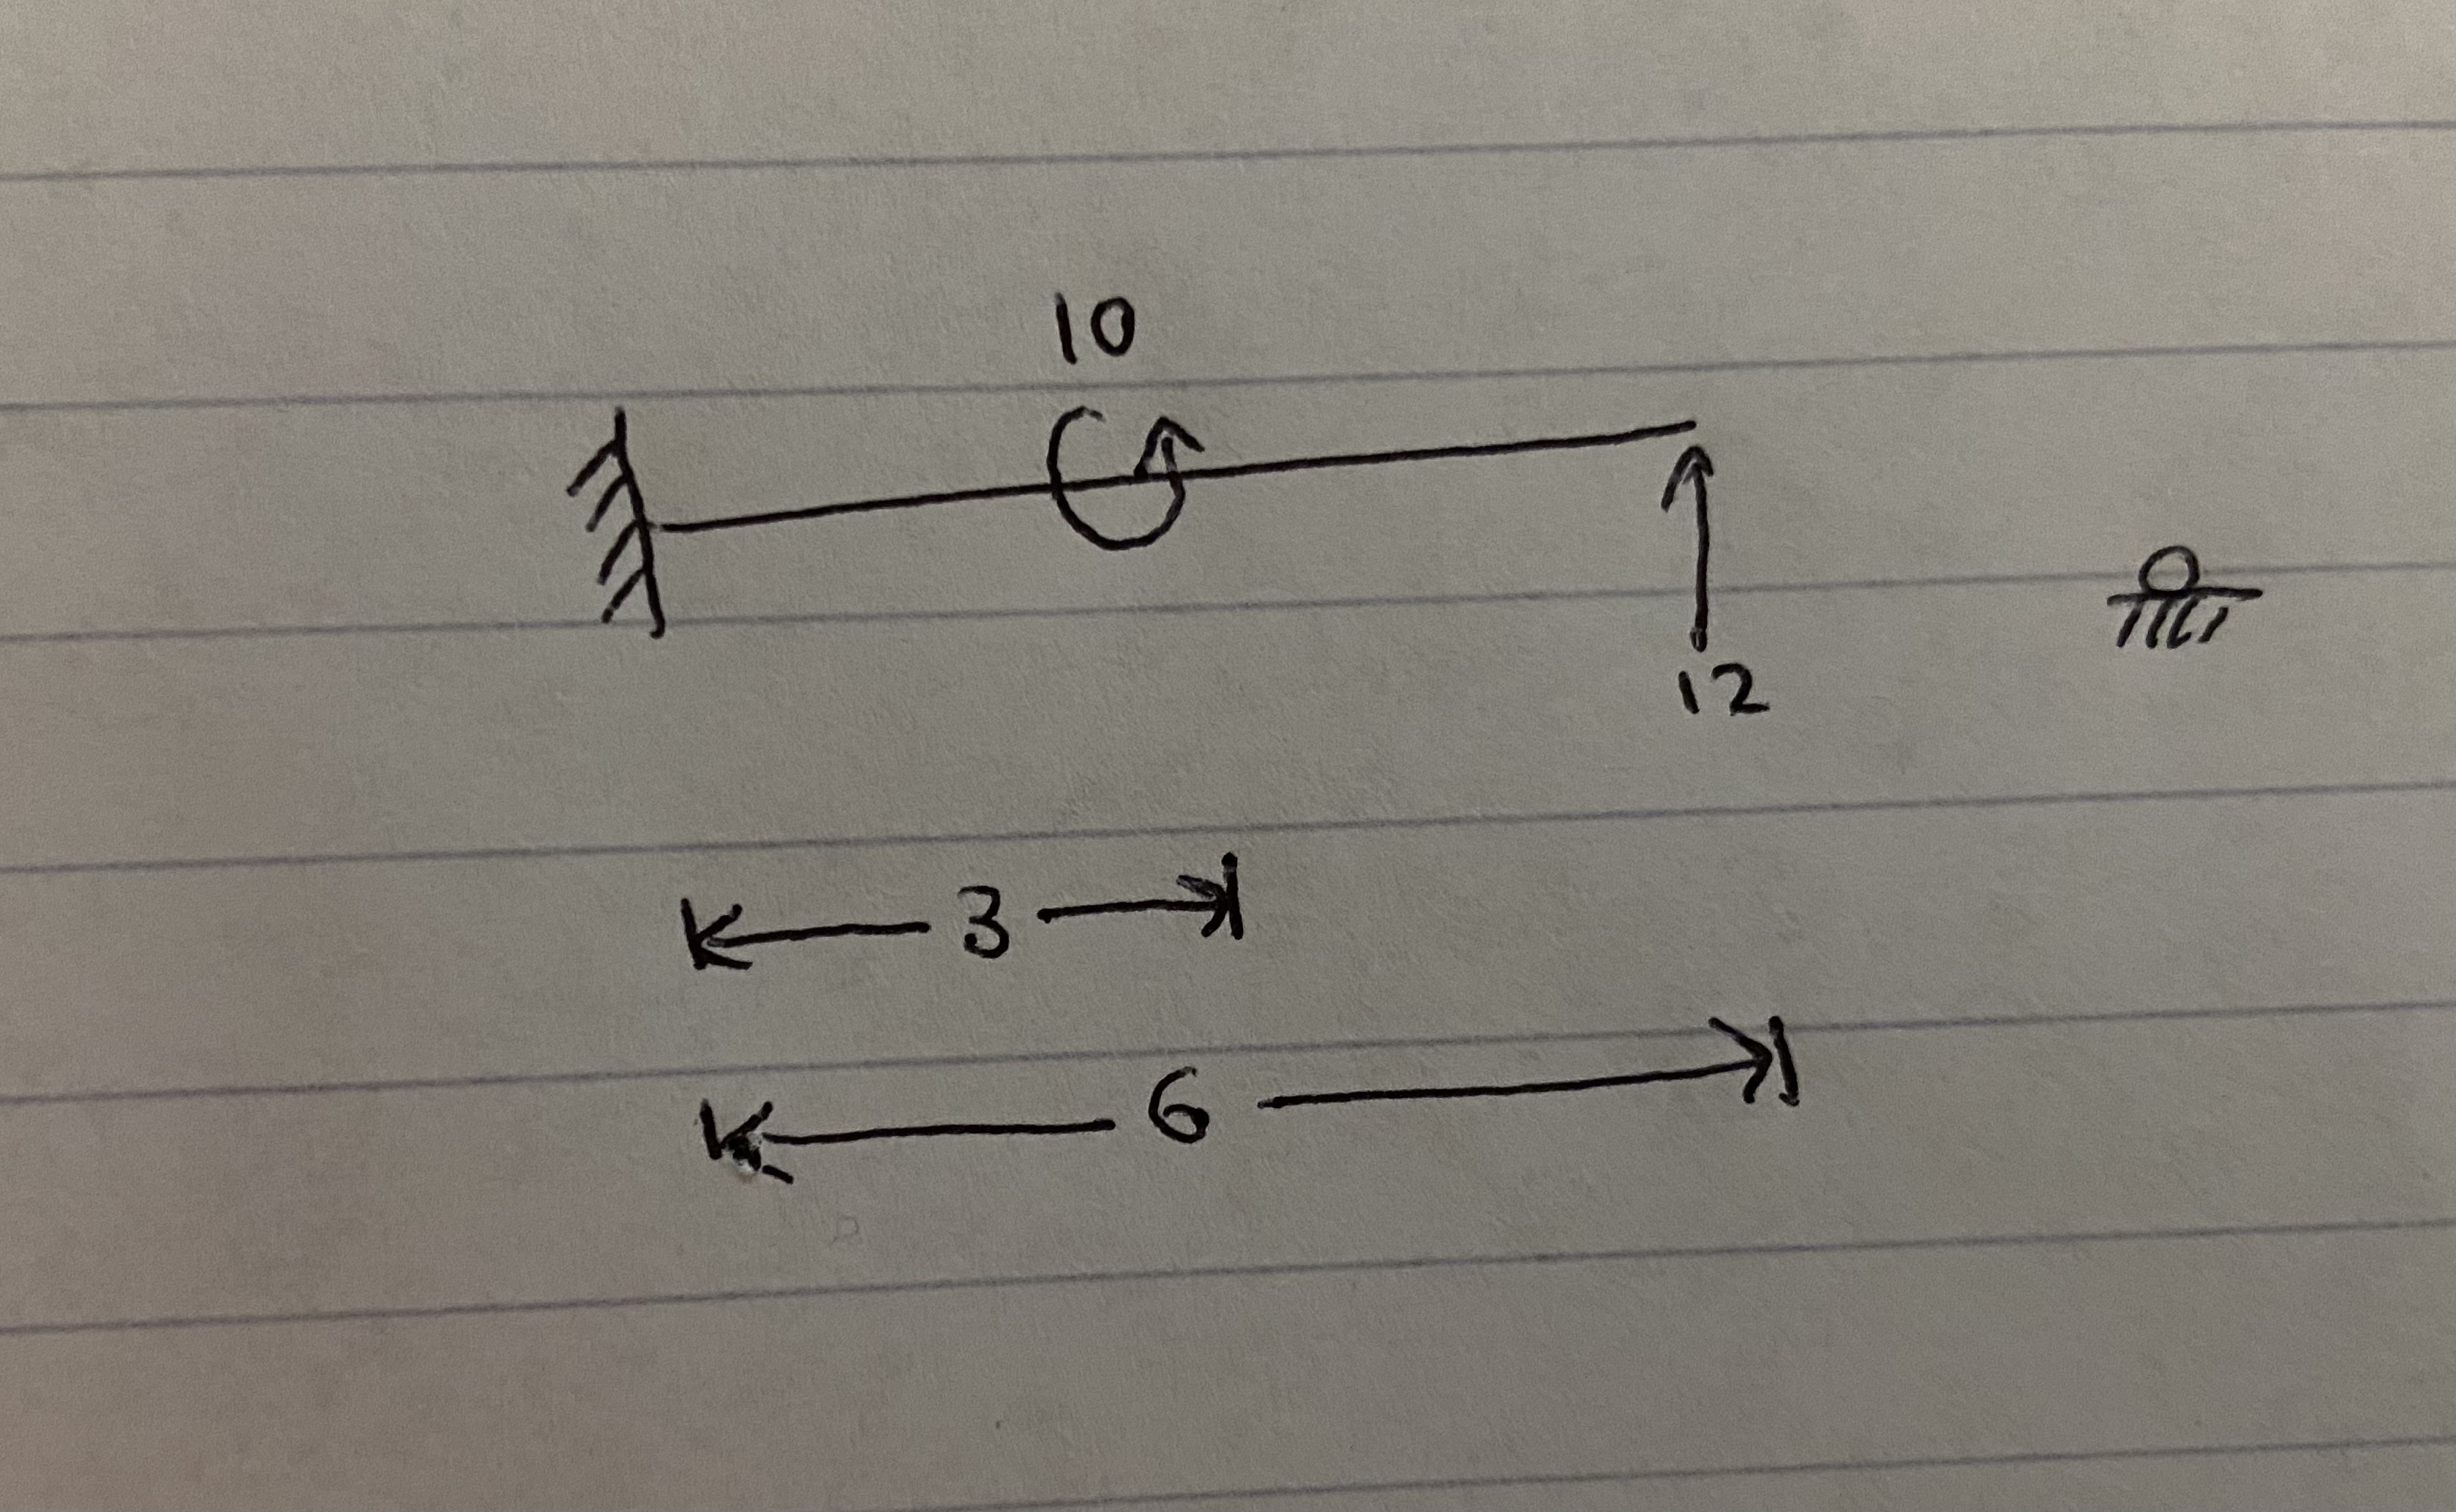 10
12
3
6